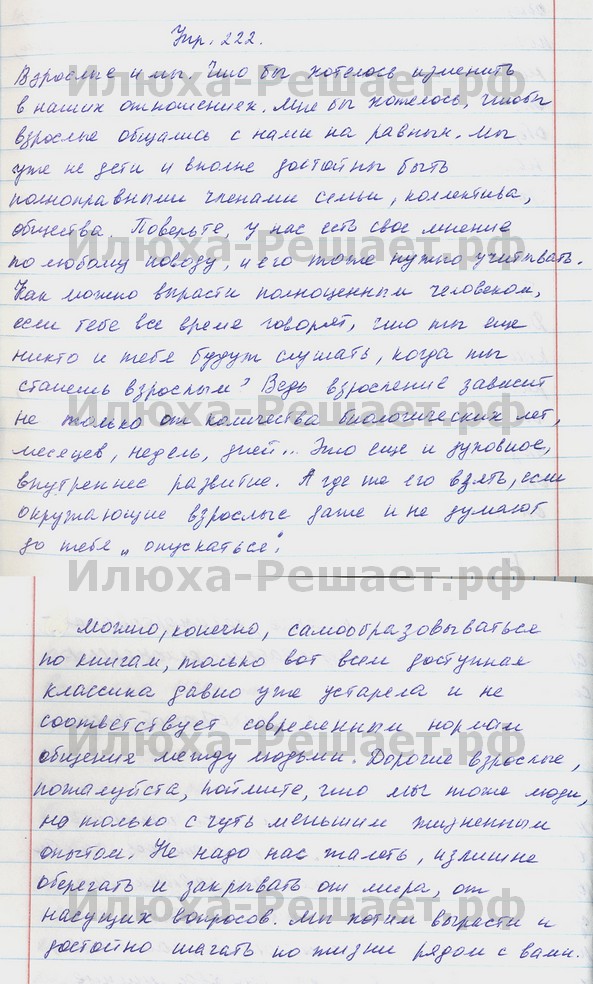 Упр. 222.
Взрослые и мы. Что бы хотелось изменить
в наших отношениях. Мне бы хотелось, чтобы
взрослые общались с нами на равных. Мы
уже не дети и вполне достойны быть
полноправными членами семьи, коллектива,
общества. Поверьте, у нас есть свое мнение
по любому поводу, и его тоже нужно учитывать.
Как можно вырасти полноценным человеком,
если тебе все время говорят, что ты еще
никто и тебя будут слушать, когда ты
станешь взрослым? Ведь взросление зависит
не только от количества биологических лет,
месяцев, недель, дней... Это еще и духовное,
внутреннее развитие. А где же его взять, если
окружающие взрослые даже и не думают
до тебя „опускаться".
Илюха-Решает.рф
Илюха-Решает.рф
Илюха-Решает.рф
Илюха-Решает.рф
Можно, конечно, самообразовываться
по книгам, только вот всем доступная
классика давно уже устарела и не
соответствует современным нормам
общения между людьми. Дорогие взрослые,
пожалуйста, поймите, что мы тоже люди,
но только с чуть меньшим жизненным
опытом. Не надо нас жалеть, излишне
оберегать и закрывать от мира, от
насущих вопросов. Мы хотим вырасти и
достойно шагать по жизни рядом с вами.
Илюха-Решает.рф
Илюха-Решает.рф